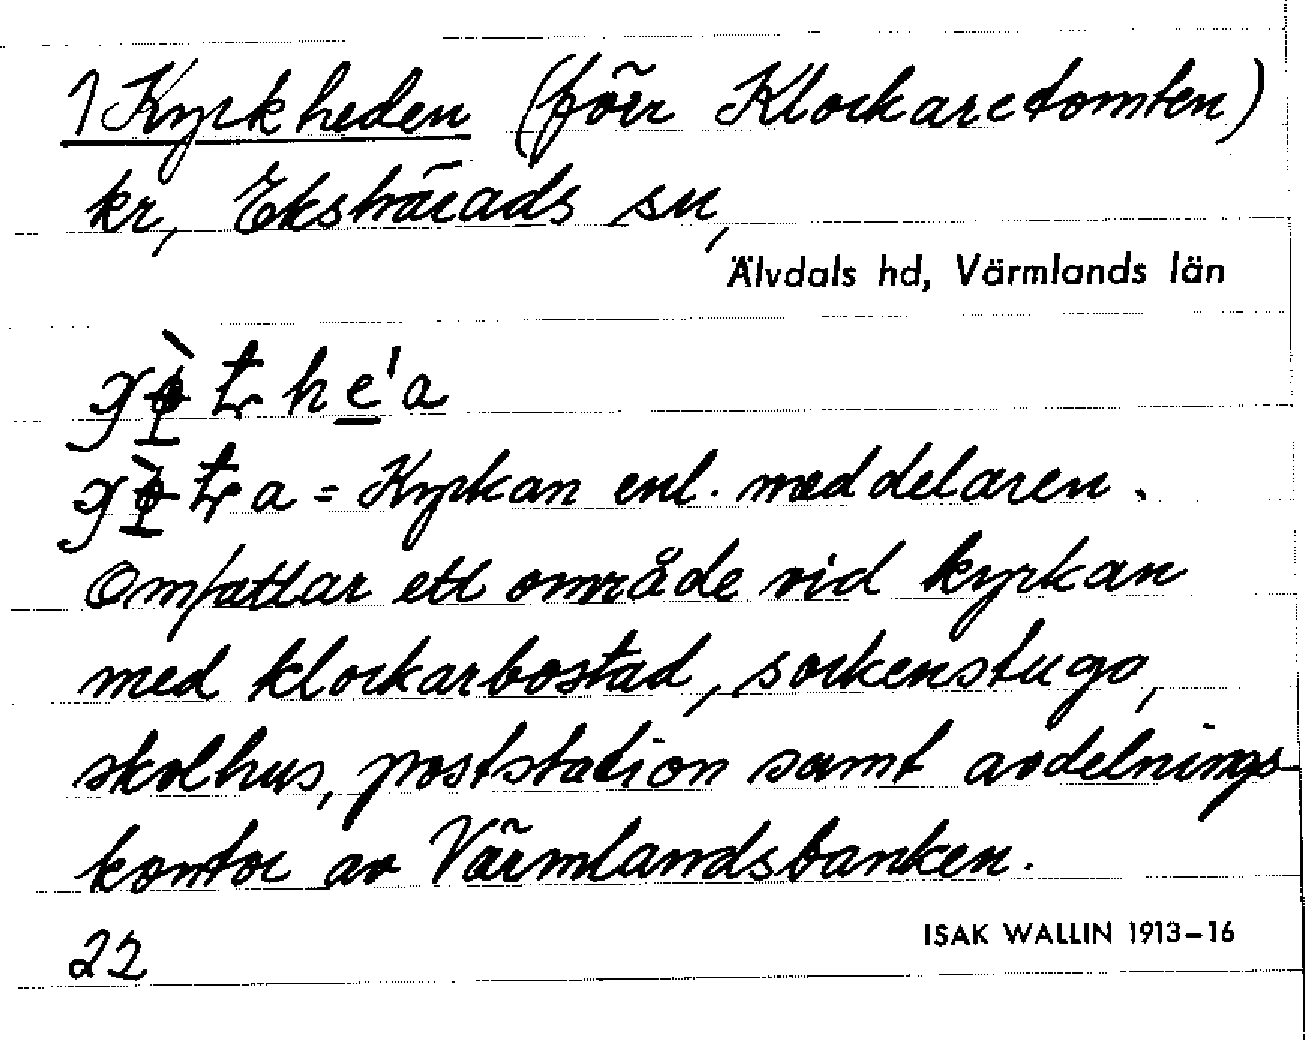 1 Kyrkheden (förr Klockaretomten)
kr, Ekshärads sn,
Älvdals hd, Värmlands län
he'a
a = Kyrkan enl. meddelaren.
Omfattar ett område vid kyrkan
med klockarbostad, sockenstuga,
skolhus, poststation samt avdelnings-
kontor av Värmlandsbanken.
22
ISAK WALLIN 1913–16